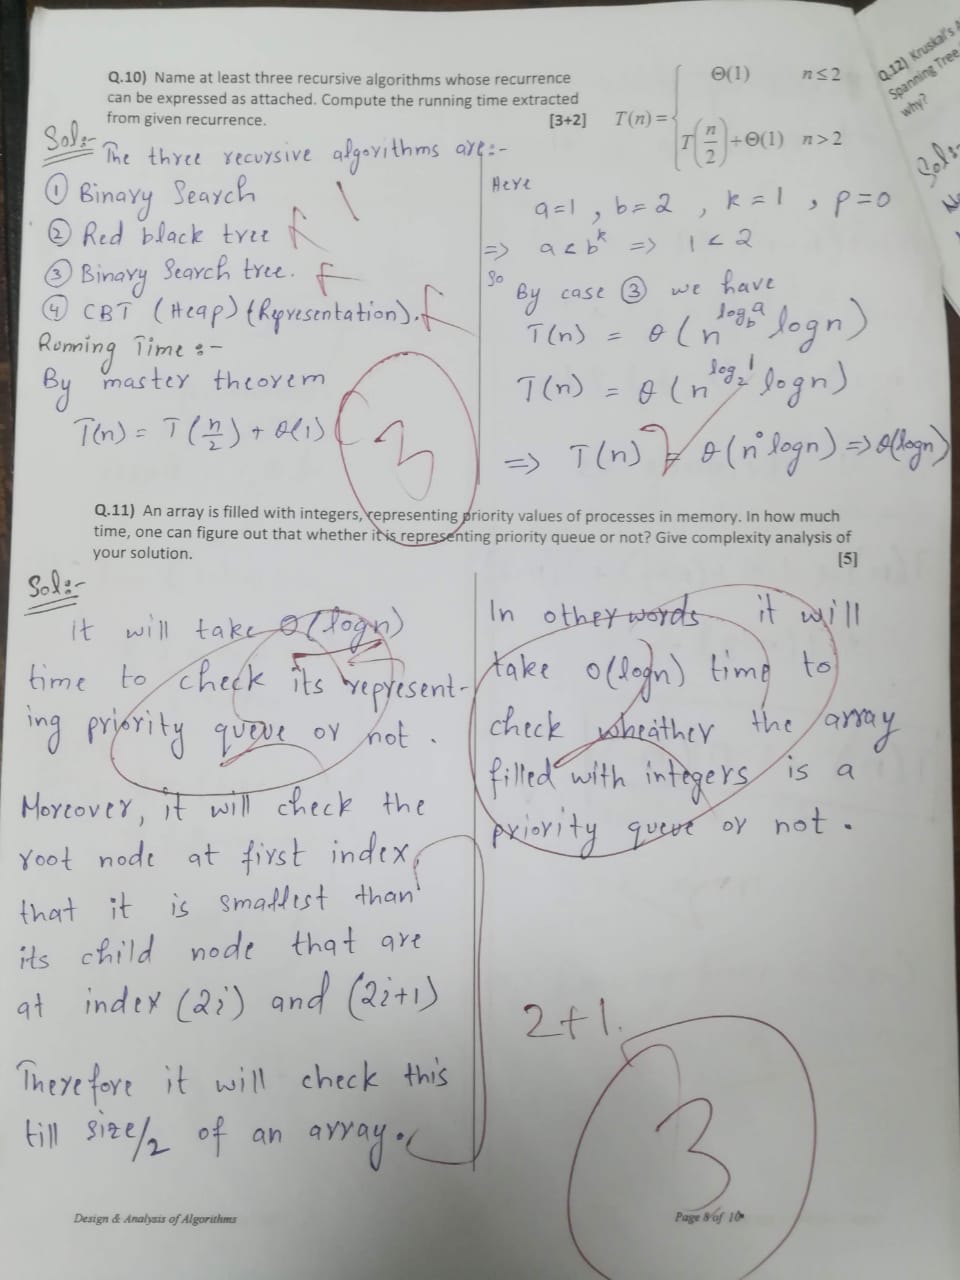 Q.10) Name at least three recursive algorithms whose recurrence
can be expressed as attached. Compute the running time extracted
from given recurrence. [3+2]
T(n) = { Θ(1) n≤2
T(n/2) + Θ(1) n>2
Q.12) Kruskal's
Spanning Tree
why?
Sol:-
Sol:- The three recursive algorithms are:-
① Binary Search
② Red black tree f
③ Binary Search tree. f
④ CBT (Heap) (Representation). f
Running Time :-
By master theorem
T(n) = T(n/2) + θ(1)
3
Here
a=1 , b=2 , k=1 , p=0
=> a<b^k => 1<2
So
By case ③ we have
T(n) = θ(n^log_b^a logn)
T(n) = θ(n^log_2^1 logn)
=> T(n) = θ(n° logn) => θ(logn)
2
Q.11) An array is filled with integers, representing priority values of processes in memory. In how much
time, one can figure out that whether it is representing priority queue or not? Give complexity analysis of
your solution. [5]
Sol:-
It will take O(logn)
time to check its represent-
ing priority queue or not .
Moreover, it will check the
root node at first index
that it is smallest than
its child node that are
at index (2i) and (2i+1)
Therefore it will check this
till size/2 of an array.
In other words it will
take O(logn) time to
check wheather the array
filled with integers is a
priority queue or not .
2+1.
3
Design & Analysis of Algorithms
Page 8 of 10